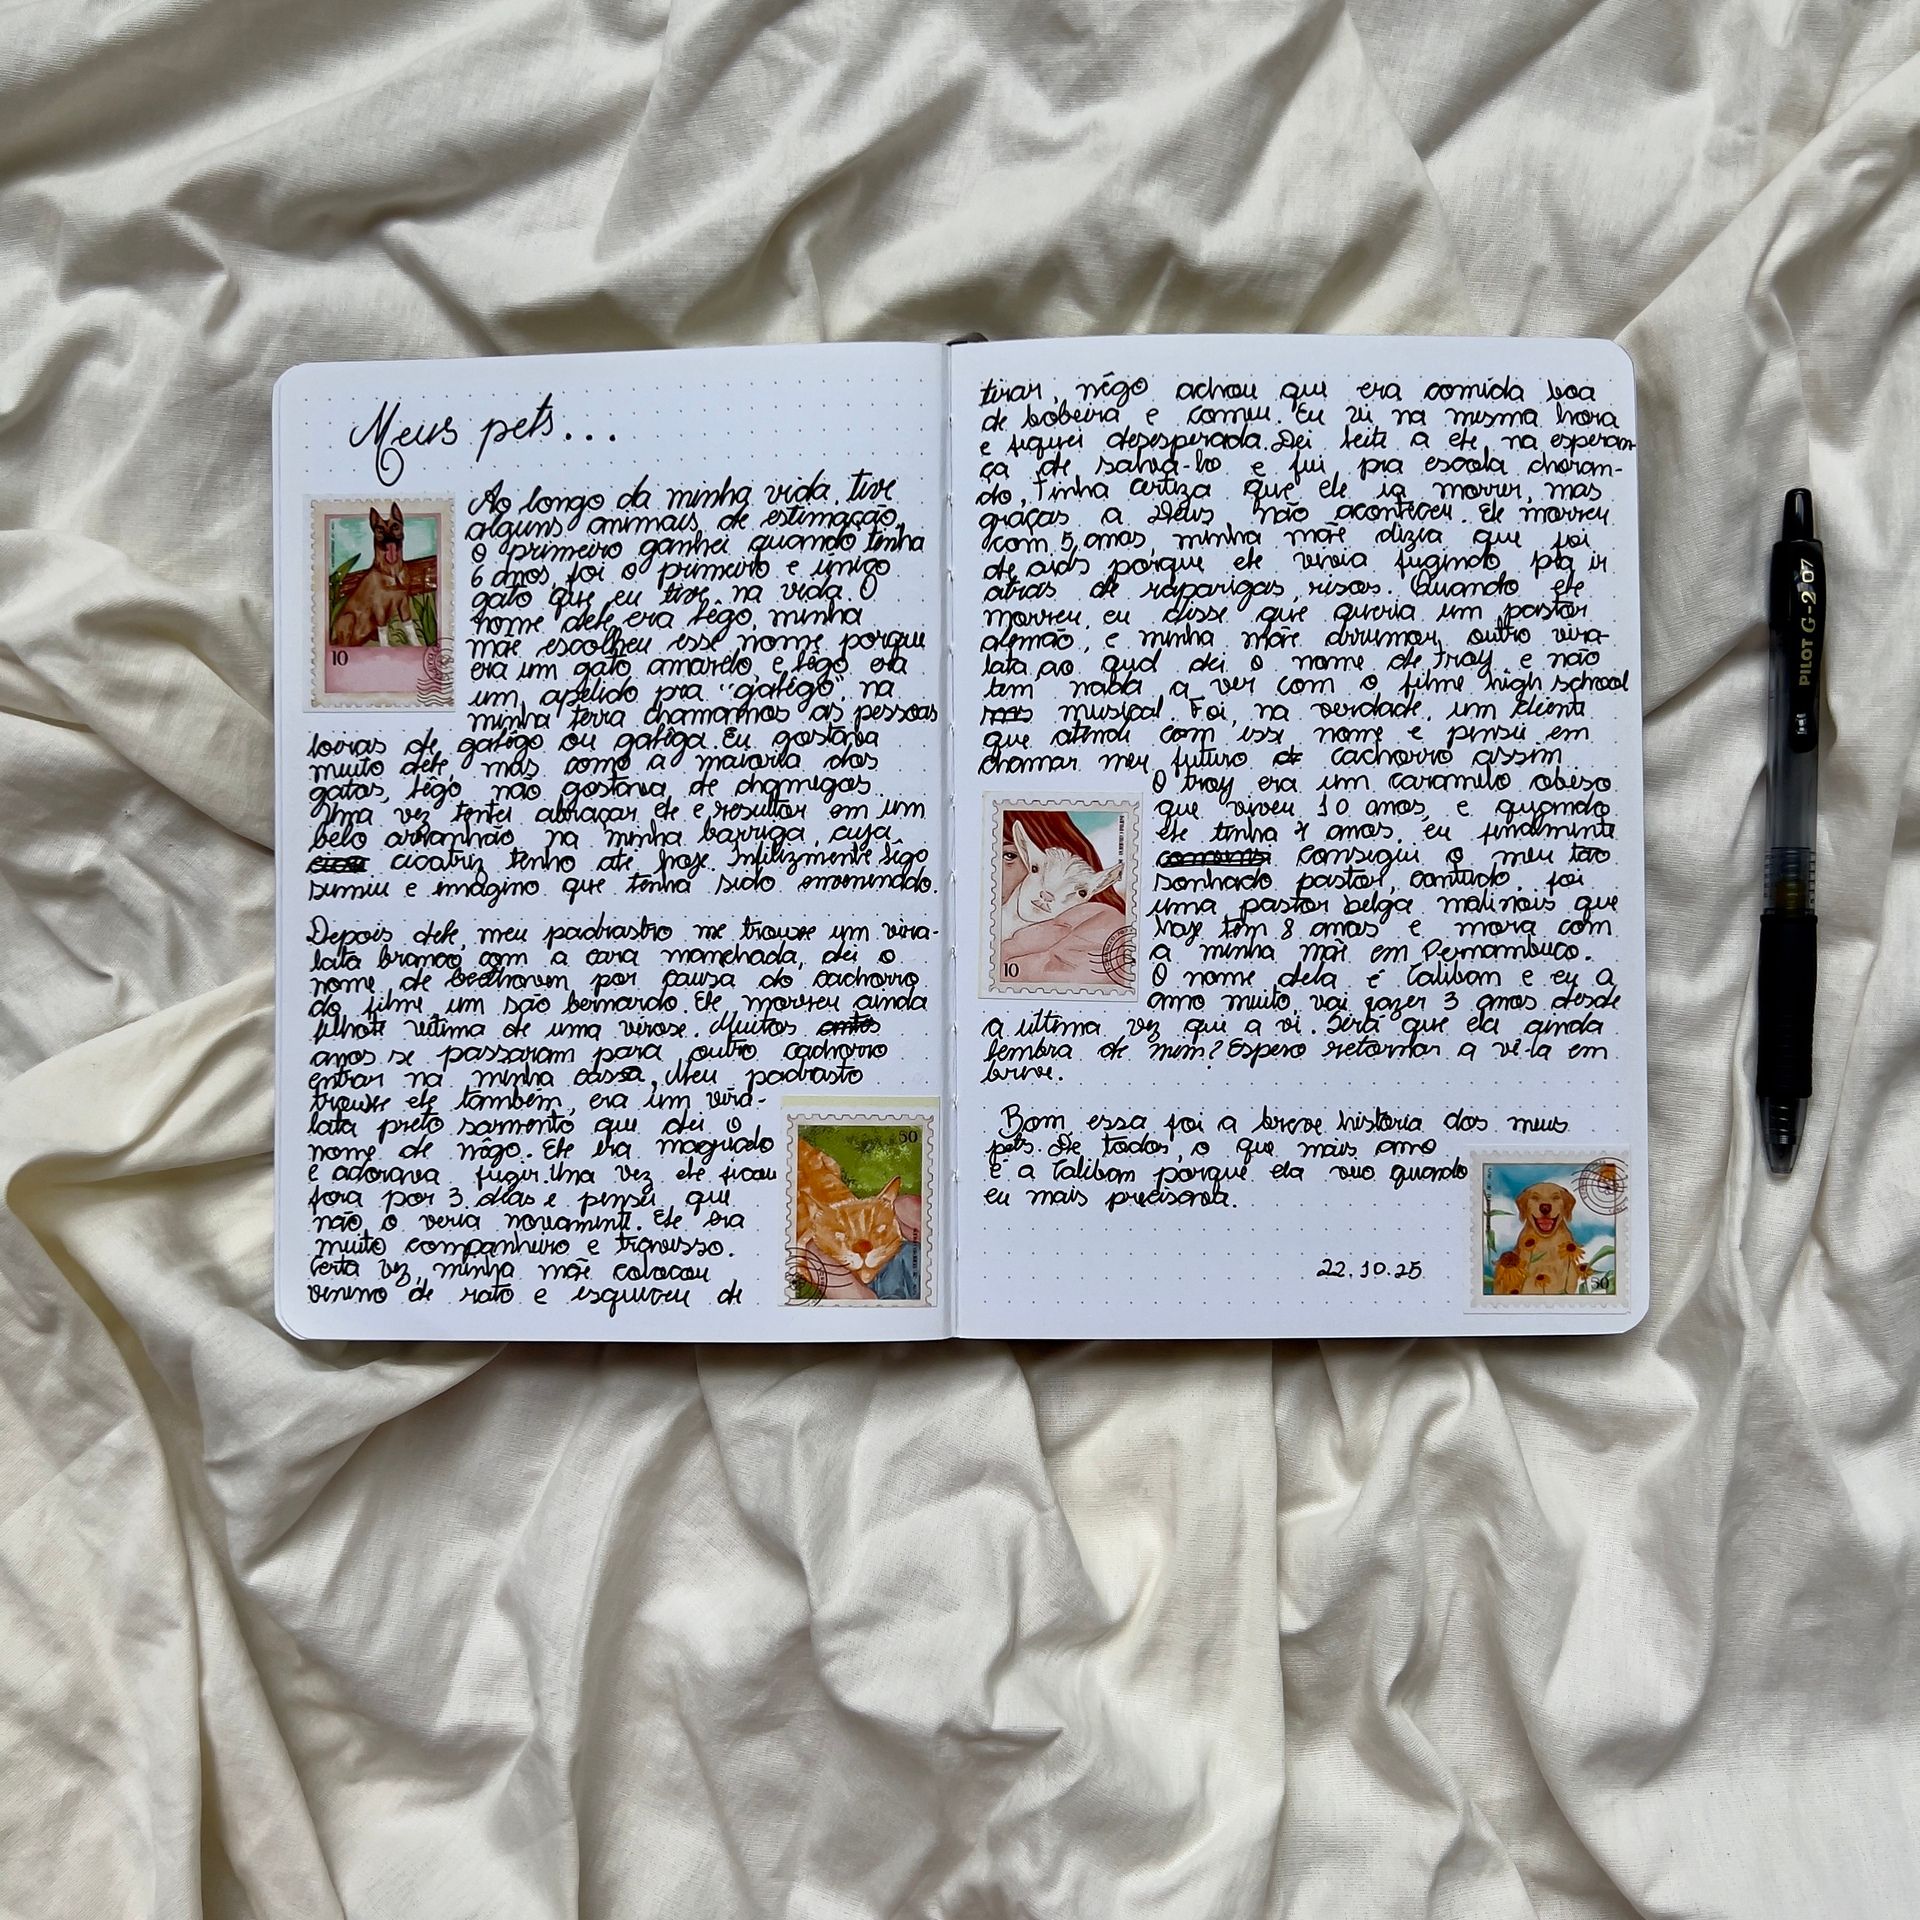 Meus pets...
Ao longo da minha vida, tive
alguns animais de estimação,
o primeiro ganhei quando tinha
6 anos, foi o primeiro e único
gato que eu tive na vida. O
nome dele era Lêgo, minha
mãe escolheu esse nome porque
era um gato amarelo, e lêgo era
um apelido pra "galêgo", na
minha terra chamamos as pessoas
loiras de galêgo ou galêga. Eu gostava
muito dele, mas como a maioria dos
gatos, Lêgo não gostava de chamegos.
Uma vez tentei abraçar ele e resultou em um
belo arranhão na minha barriga, cuja
cicatriz tenho até hoje. Infelizmente Lêgo
sumiu e imagino que tenha sido envenenado.
Depois dele, meu padrastro me trouxe um vira-
lata branco com a cara manchada, dei o
nome de beethoven por causa do cachorro
do filme um são bernardo. Ele morreu ainda
filhote vítima de uma virose. Muitos
anos se passaram para outro cachorro
entrar na minha cassa. Meu padrasto
trouxe ele também, era um vira-
lata preto sarnento que dei o
nome de nêgo. Ele era magrelo
e adorava fugir. Uma vez ele ficou
fora por 3 dias e pensei que
não o veria novamente. Ele era
muito companheiro e travesso.
Certa vez, minha mãe colocou
veneno de rato e esqueceu de
tirar, nêgo achou que era comida boa
de bobeira e comeu. Eu vi na mesma hora
e fiquei desesperada. Dei leite a ele na esperan-
ça de salvá-lo e fui pra escola choran-
do. Tinha certeza que ele ia morrer, mas
graças a Deus não aconteceu. Ele morreu
com 5 anos, minha mãe dizia que foi
de aids porque ele vivia fugindo pra ir
atrás de raparigas, risos. Quando ele
morreu, eu disse que queria um pastor
alemão, e minha mãe arrumou outro vira-
lata ao qual dei o nome de Troy, e não
tem nada a ver com o filme high school
musical. Foi, na verdade, um cliente
que atendi com esse nome e pensei em
chamar meu futuro cachorro assim.
O troy era um caramelo obeso
que viveu 10 anos, e quando
ele tinha 4 anos, eu finalmente
consegui o meu tão
sonhado pastor, contudo, foi
uma pastor belga malinois que
hoje tem 8 anos e mora com
a minha mãe em Pernambuco.
O nome dela é Taliban e eu a
amo muito, vai fazer 3 anos desde
a última vez que a vi. Será que ela ainda
lembra de mim? Espero retornar a vê-la em
breve.
Bom, essa foi a breve história dos meus
pets. De todos, o que mais amo
é a Taliban porque ela veio quando
eu mais precisava.
22.10.25
10
50
10
50
PILOT G-2 07